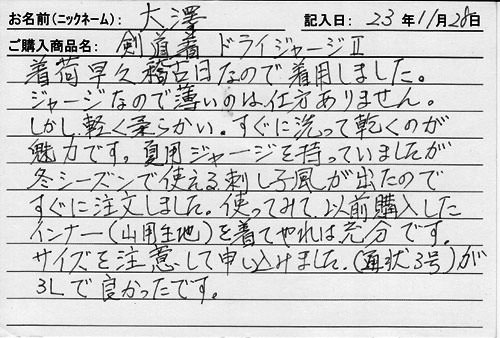 お名前(ニックネーム): 大澤 記入日: 23年11月28日
ご購入商品名: 剣道着 ドライジャージII
着荷早々稽古日なので着用しました。
ジャージなので薄いのは仕方ありません。
しかし軽く柔らかい。すぐに洗って乾くのが
魅力です。夏用ジャージを持っていましたが
冬シーズンで使える刺し子風が出たので
すぐに注文しました。使ってみて以前購入した
インナー(山用生地)を着てやれば充分です。
サイズを注意して申し込みました。(通状3号)が
3Lで良かったです。